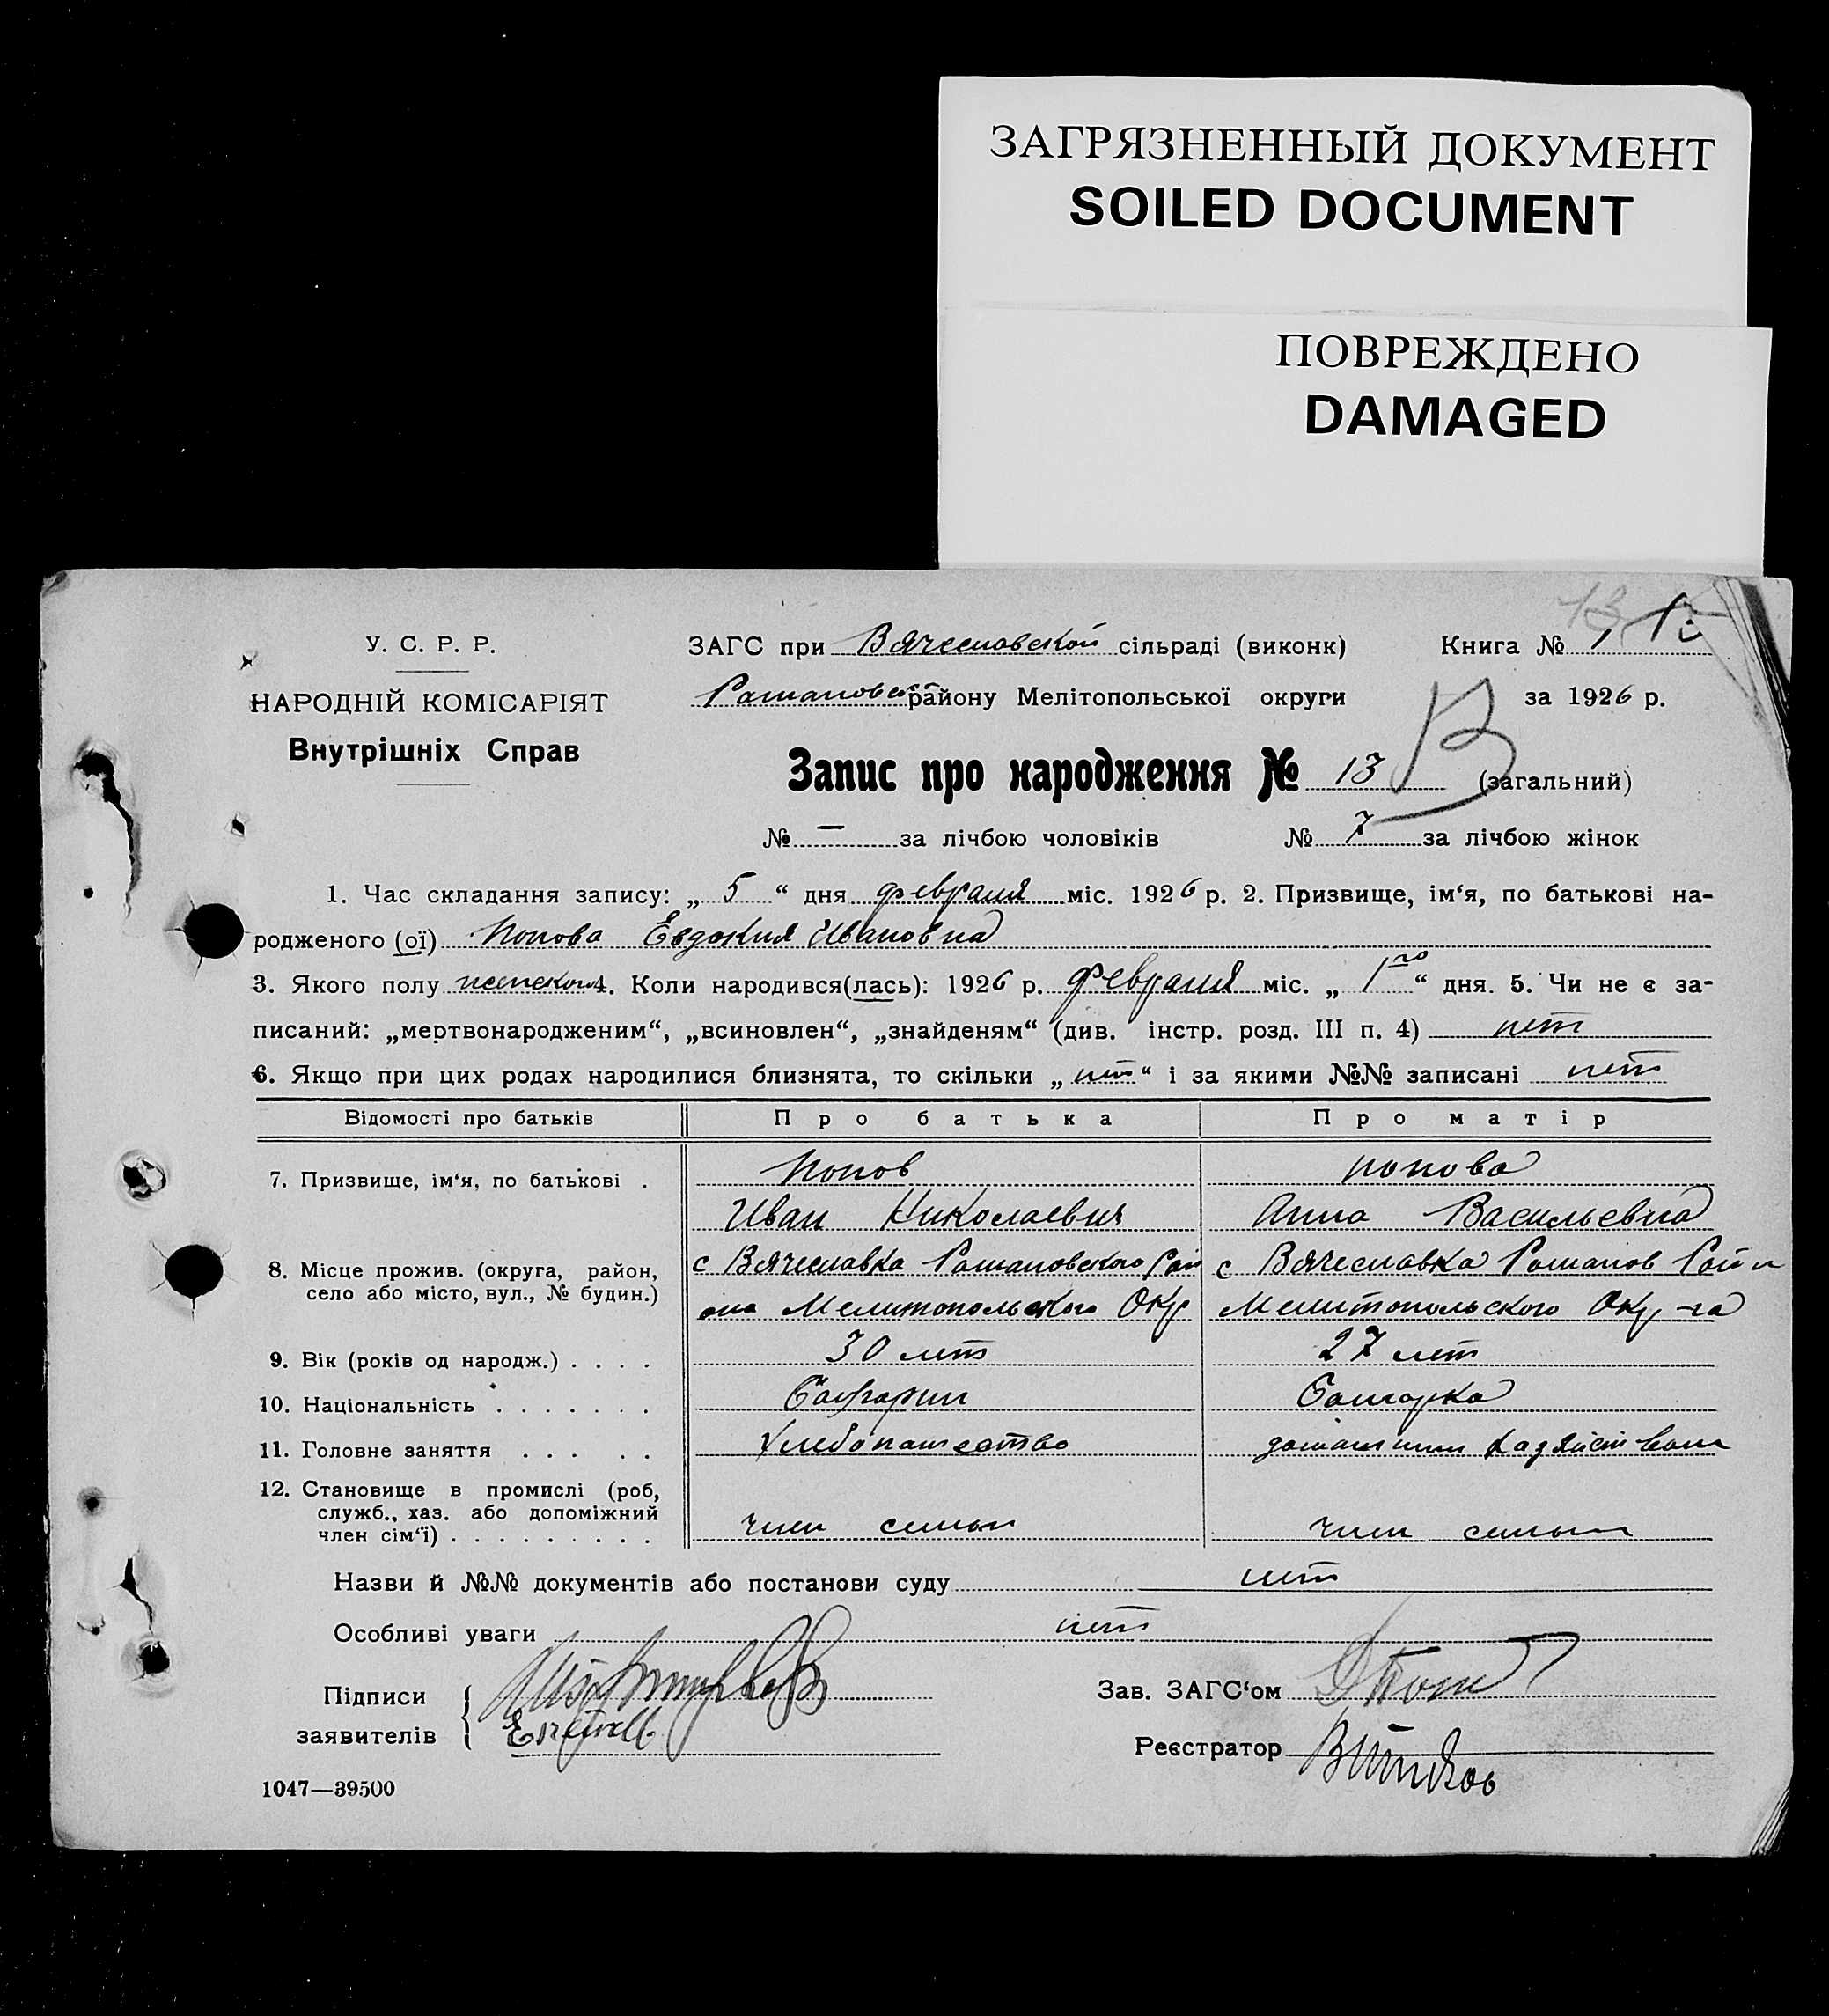 ЗАГРЯЗНЕННЫЙ ДОКУМЕНТ
SOILED DOCUMENT
ПОВРЕЖДЕНО
DAMAGED
У. С. Р. Р.
НАРОДНІЙ КОМІСАРІЯТ
Внутрішніх Справ
ЗАГС при Вячеславской сільраді (виконк) Книга № 1
району Мелітопольської округи за 1926 р.
Запис про народження № 13 (загальний)
№ — за лічбою чоловіків № 7 за лічбою жінок
1. Час складання запису: „ 5 “ дня февраля міс. 1926 р. 2. Призвище, ім‘я, по батькові на-
родженого (ої) Попова Евдокия Ивановна
3. Якого полу женского 4. Коли народився(лась): 1926 р. февраля міс. „ 1го “ дня. 5. Чи не є за-
писаний: „мертвонародженим“, „всиновлен“, „знайденям“ (див. інстр. розд. III п. 4) нет
6. Якщо при цих родах народилися близнята, то скільки „ нет “ і за якими №№ записані нет
Відомості про батьків Про батька Про матір
7. Призвище, ім‘я, по батькові . Попов Попова
Иван Николаевич Анна Васильевна
8. Місце прожив. (округа, район, село або місто, вул., № будин.) с Вячеславка Романовского Рай с Вячеславка Романов Райн
она Мелитопольского Окр Мелитопольского Окр-га
9. Вік (років од народж.) . . . . 30 лет 27 лет
10. Національність . . . . . . . Болгарин Болгарка
11. Головне заняття . . . . . Хлебопашество домашним хазяйством
12. Становище в промислі (роб,
служб., хаз. або допоміжний
член сім‘ї) . . . . . . . . . член семьи член семьи
Назви й №№ документів або постанови суду нет
Особливі уваги нет
Підписи
заявителів
Зав. ЗАГС‘ом
Реєстратор
1047—39500